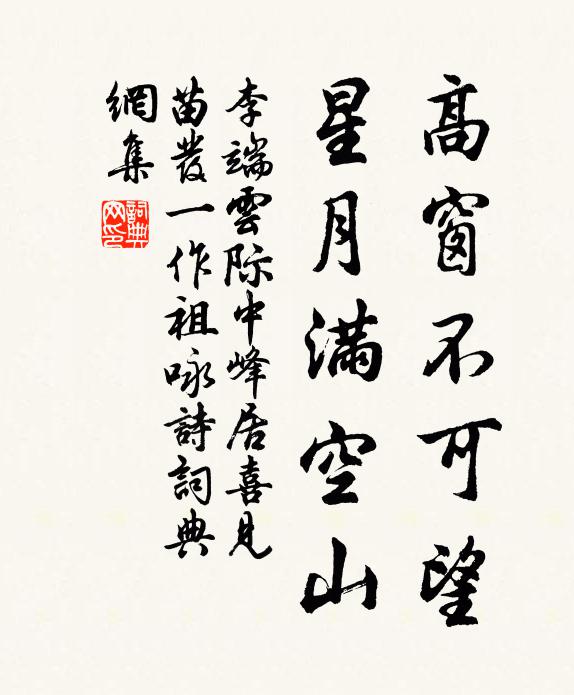 高窗不可望
星月滿空山
李端雲際中峰居喜見
苗發一作祖咏詩詞典
網集
詞典網印